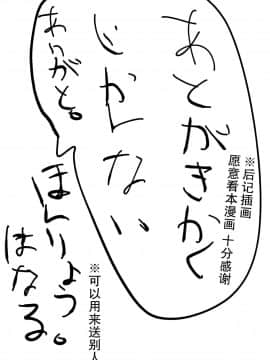 あとがきかく
※后记插画
愿意看本漫画 十分感谢
じかんない
ありがと。
※可以用来送别人
ほんりょう。
はなる